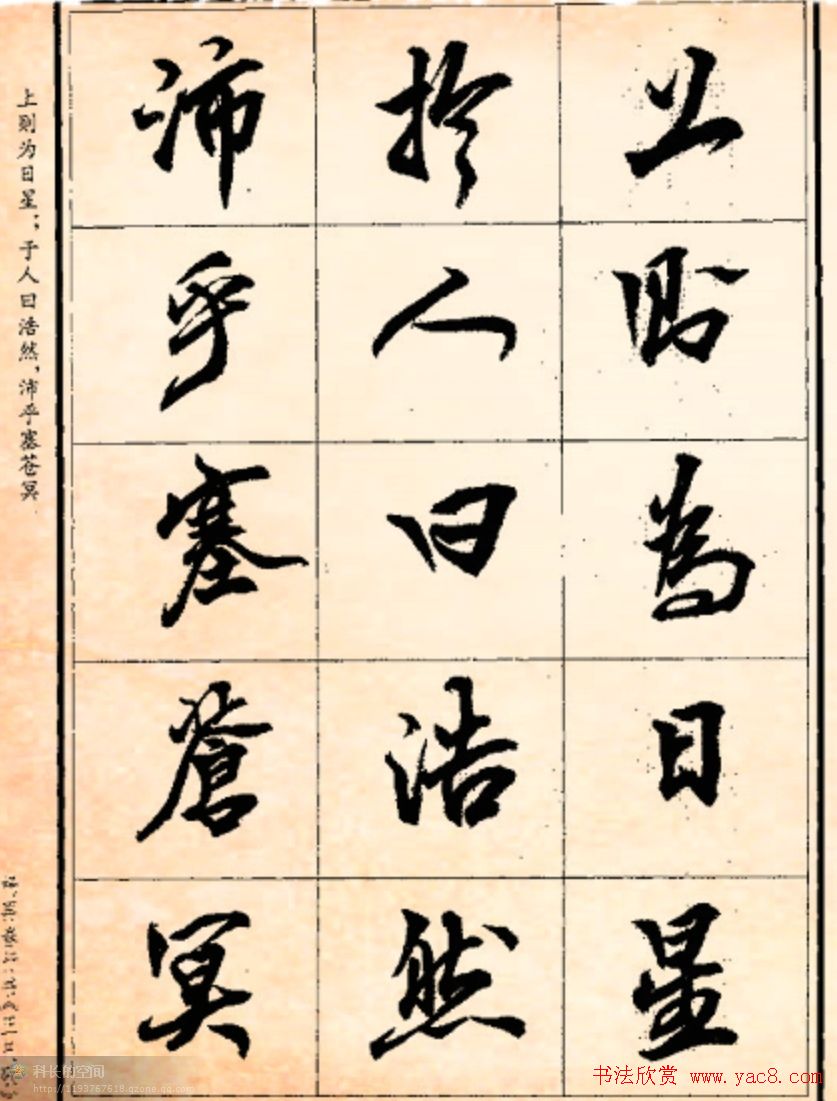 上則為日星
扵人曰浩然
沛乎塞蒼冥
上则为日星；于人曰浩然，沛乎塞苍冥
科长的空间
http://1193767618.qzone.qq.com
书法欣赏 www.yac8.com